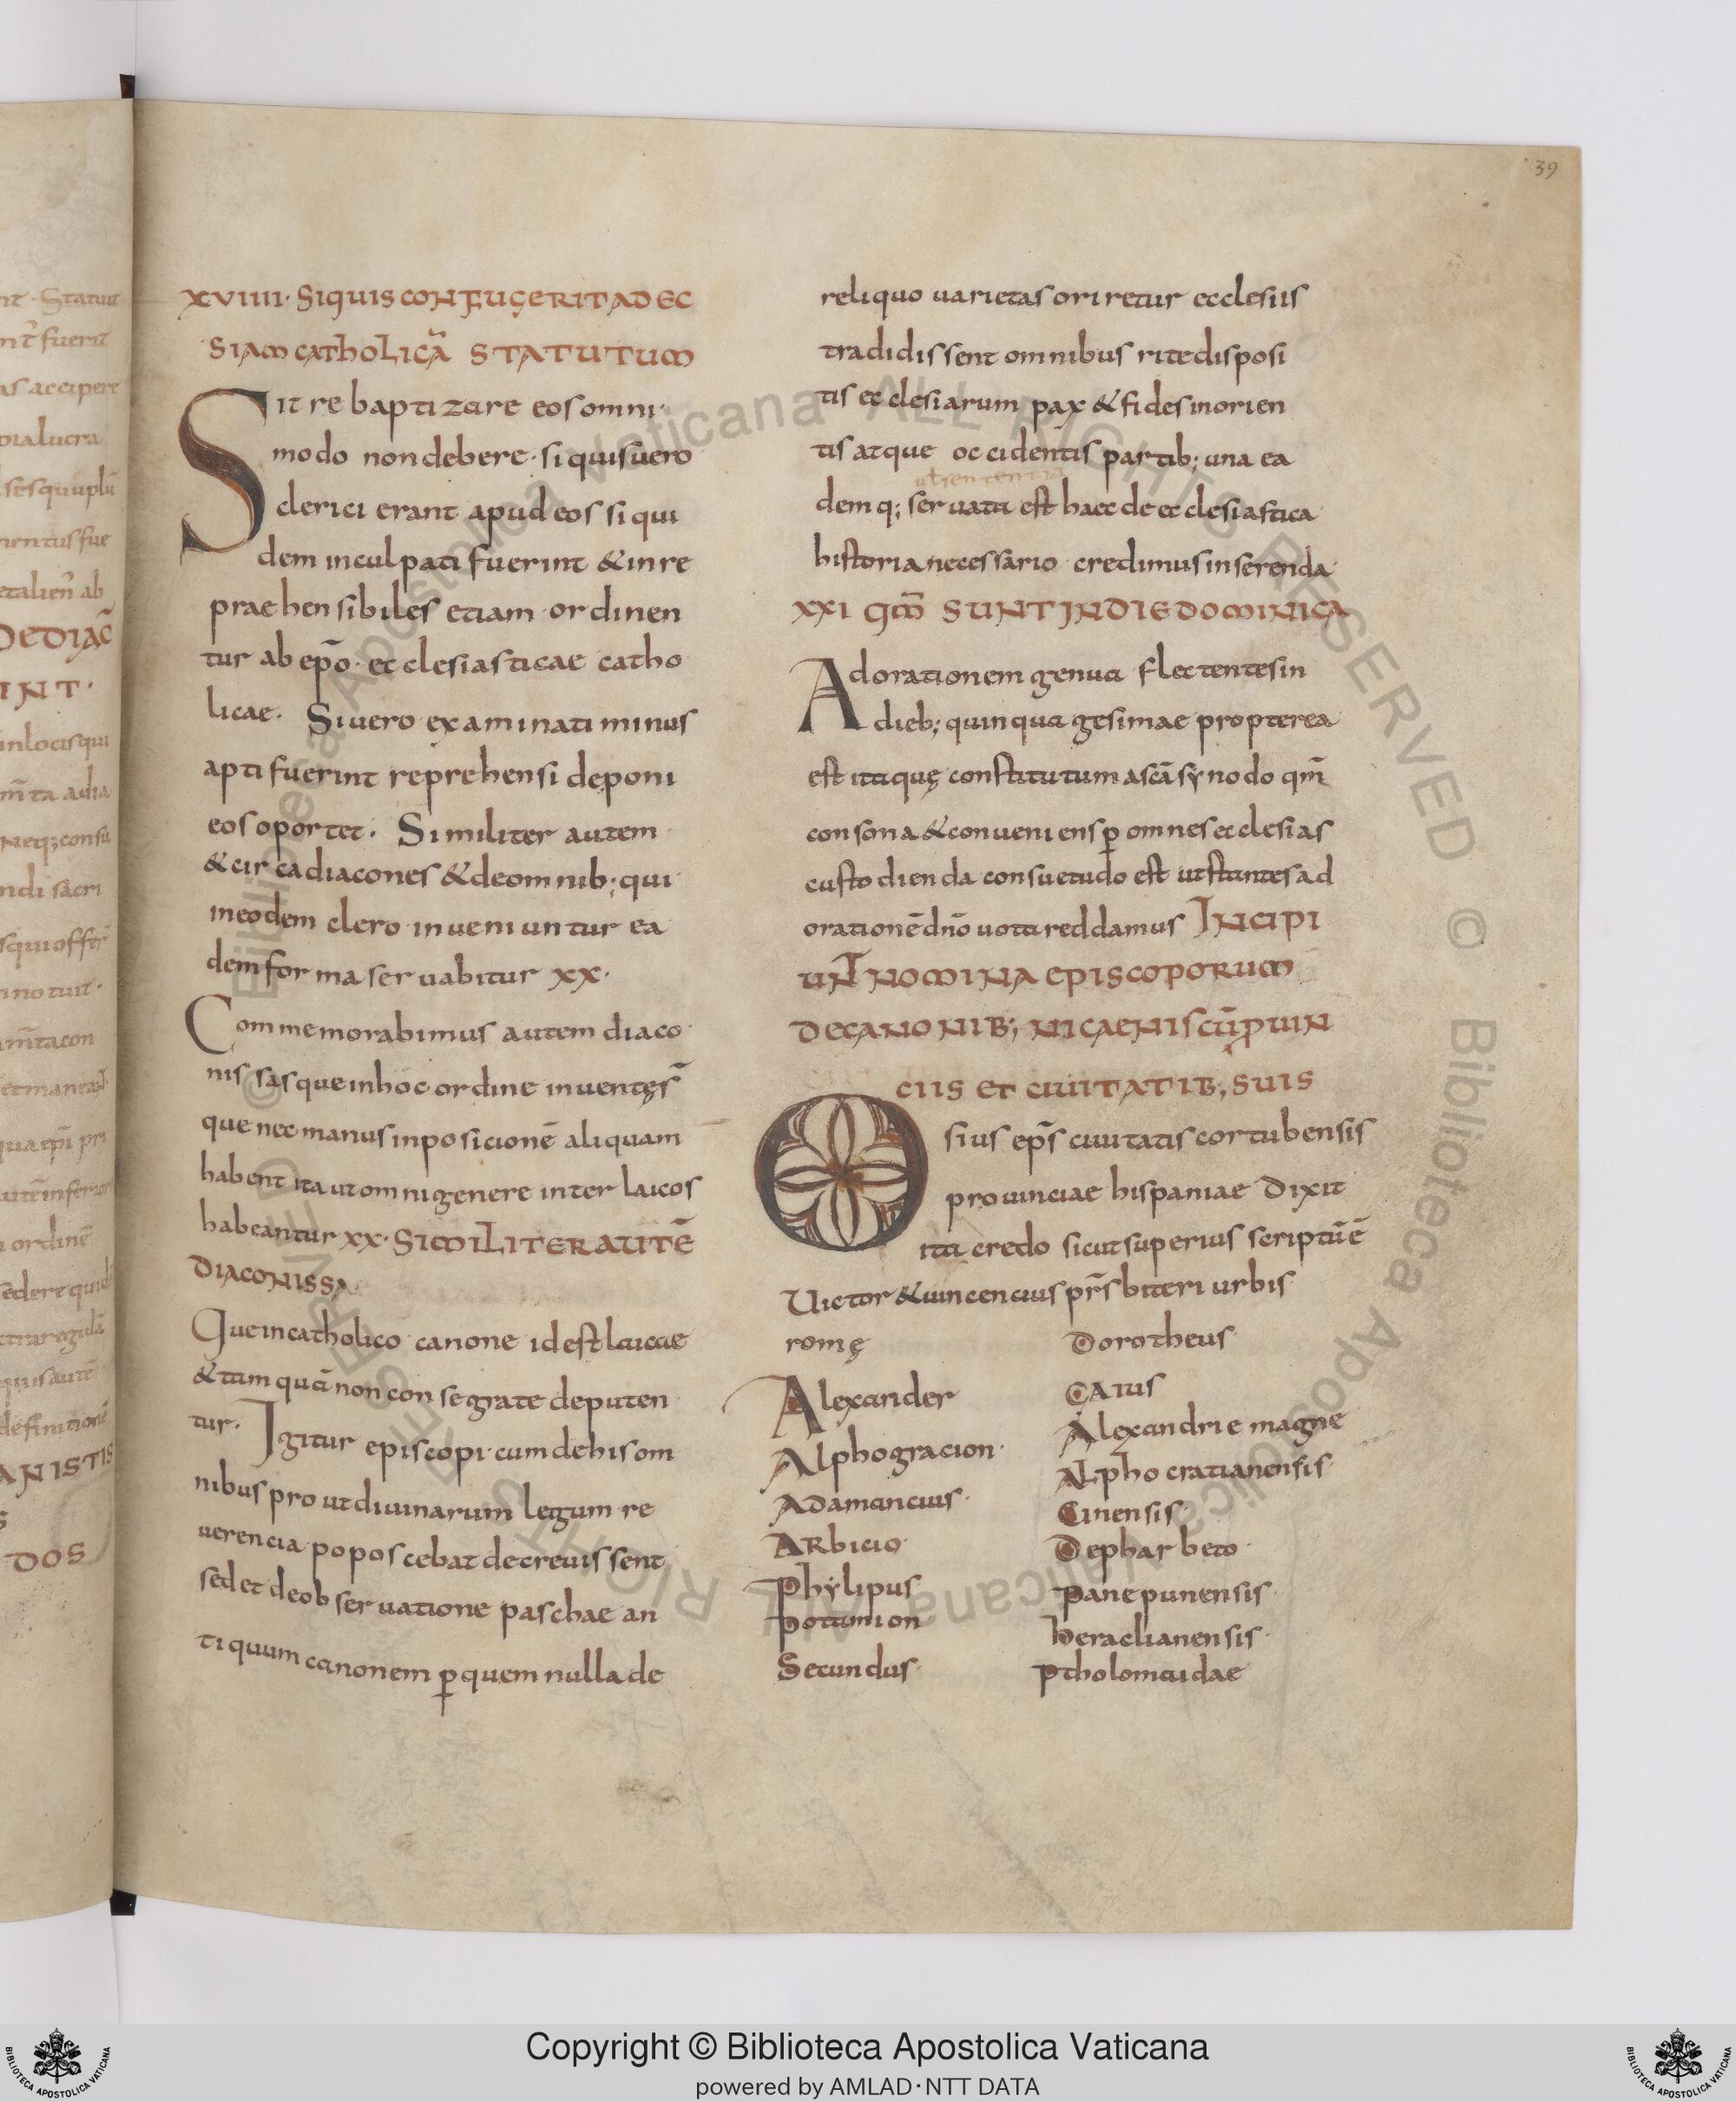 39
xviiii. Siquis confugerit ad ec
siam catholicā statutum
Sit re baptizare eos omni
modo non debere. si quis uero
clerici erant apud eos si qui
dem inculpati fuerint & inre
praehensibiles etiam ordinen
tur ab ep̄o. ecclesiasticae catho
licae. Si uero examinati minus
apti fuerint reprehensi deponi
eos oportet. Similiter autem
& circa diacones & de omnib; qui
in eodem clero inueniuntur ea
dem forma seruabitur xx.
Commemorabimus autem diaco
nissas que in hoc ordine inuentęs̄
que nec manus inposicionē aliquam
habent ita ut omni genere inter laicos
habeantur xx. Similiter autē
diaconissa
Que in catholico canone id est laicae
& tamquā non consegrate deputen
tur. Igitur episcopi. cum de his om
nibus prout diuinarum legum re
uerencia popos cebat decreuissent
sed et de obseruatione paschae an
tiquum canonem p̱ quem nulla de
reliquo uarietas oriretur ecclesiis
tradidissent omnibus rite disposi
tis ecclesiarum pax & fides in orien
tis atque occidentis partib; una ea
demq; seruata est haec de ecclesiastica
historia necessario credimus inserenda
xxi qm̄ sunt in die dominica
Adorationem genua flectentes in
dieb; quinquagesimae propterea
est itaquę constitutum a scā synodo qm̄
consona & conueniens p̱ omnes ecclesias
custodienda consuetudo est ut stantes ad
orationē dn̄o uota reddamus Incipi
unt nomina episcoporum
de canonib; nicaenis cū prouin
ciis et ciuitatib; suis
Osius ep̄s ciuitatis cortubensis
prouinciae hispaniae dixit
ita credo sicut superius scriptū ē
Uictor & uincencius pr̄sbiteri urbis
romę
Dorotheus
Alexander
Caius
Alphogracion.
Alexandrie magne
Adamancius.
Alphocratianensis
Arbicio
Cinensis
Phylipus
Dephar beto.
Potamion
Panepunensis
Secundus
Heraclianensis
Ptholomaidae
Copyright © Biblioteca Apostolica Vaticana
powered by AMLAD·NTT DATA